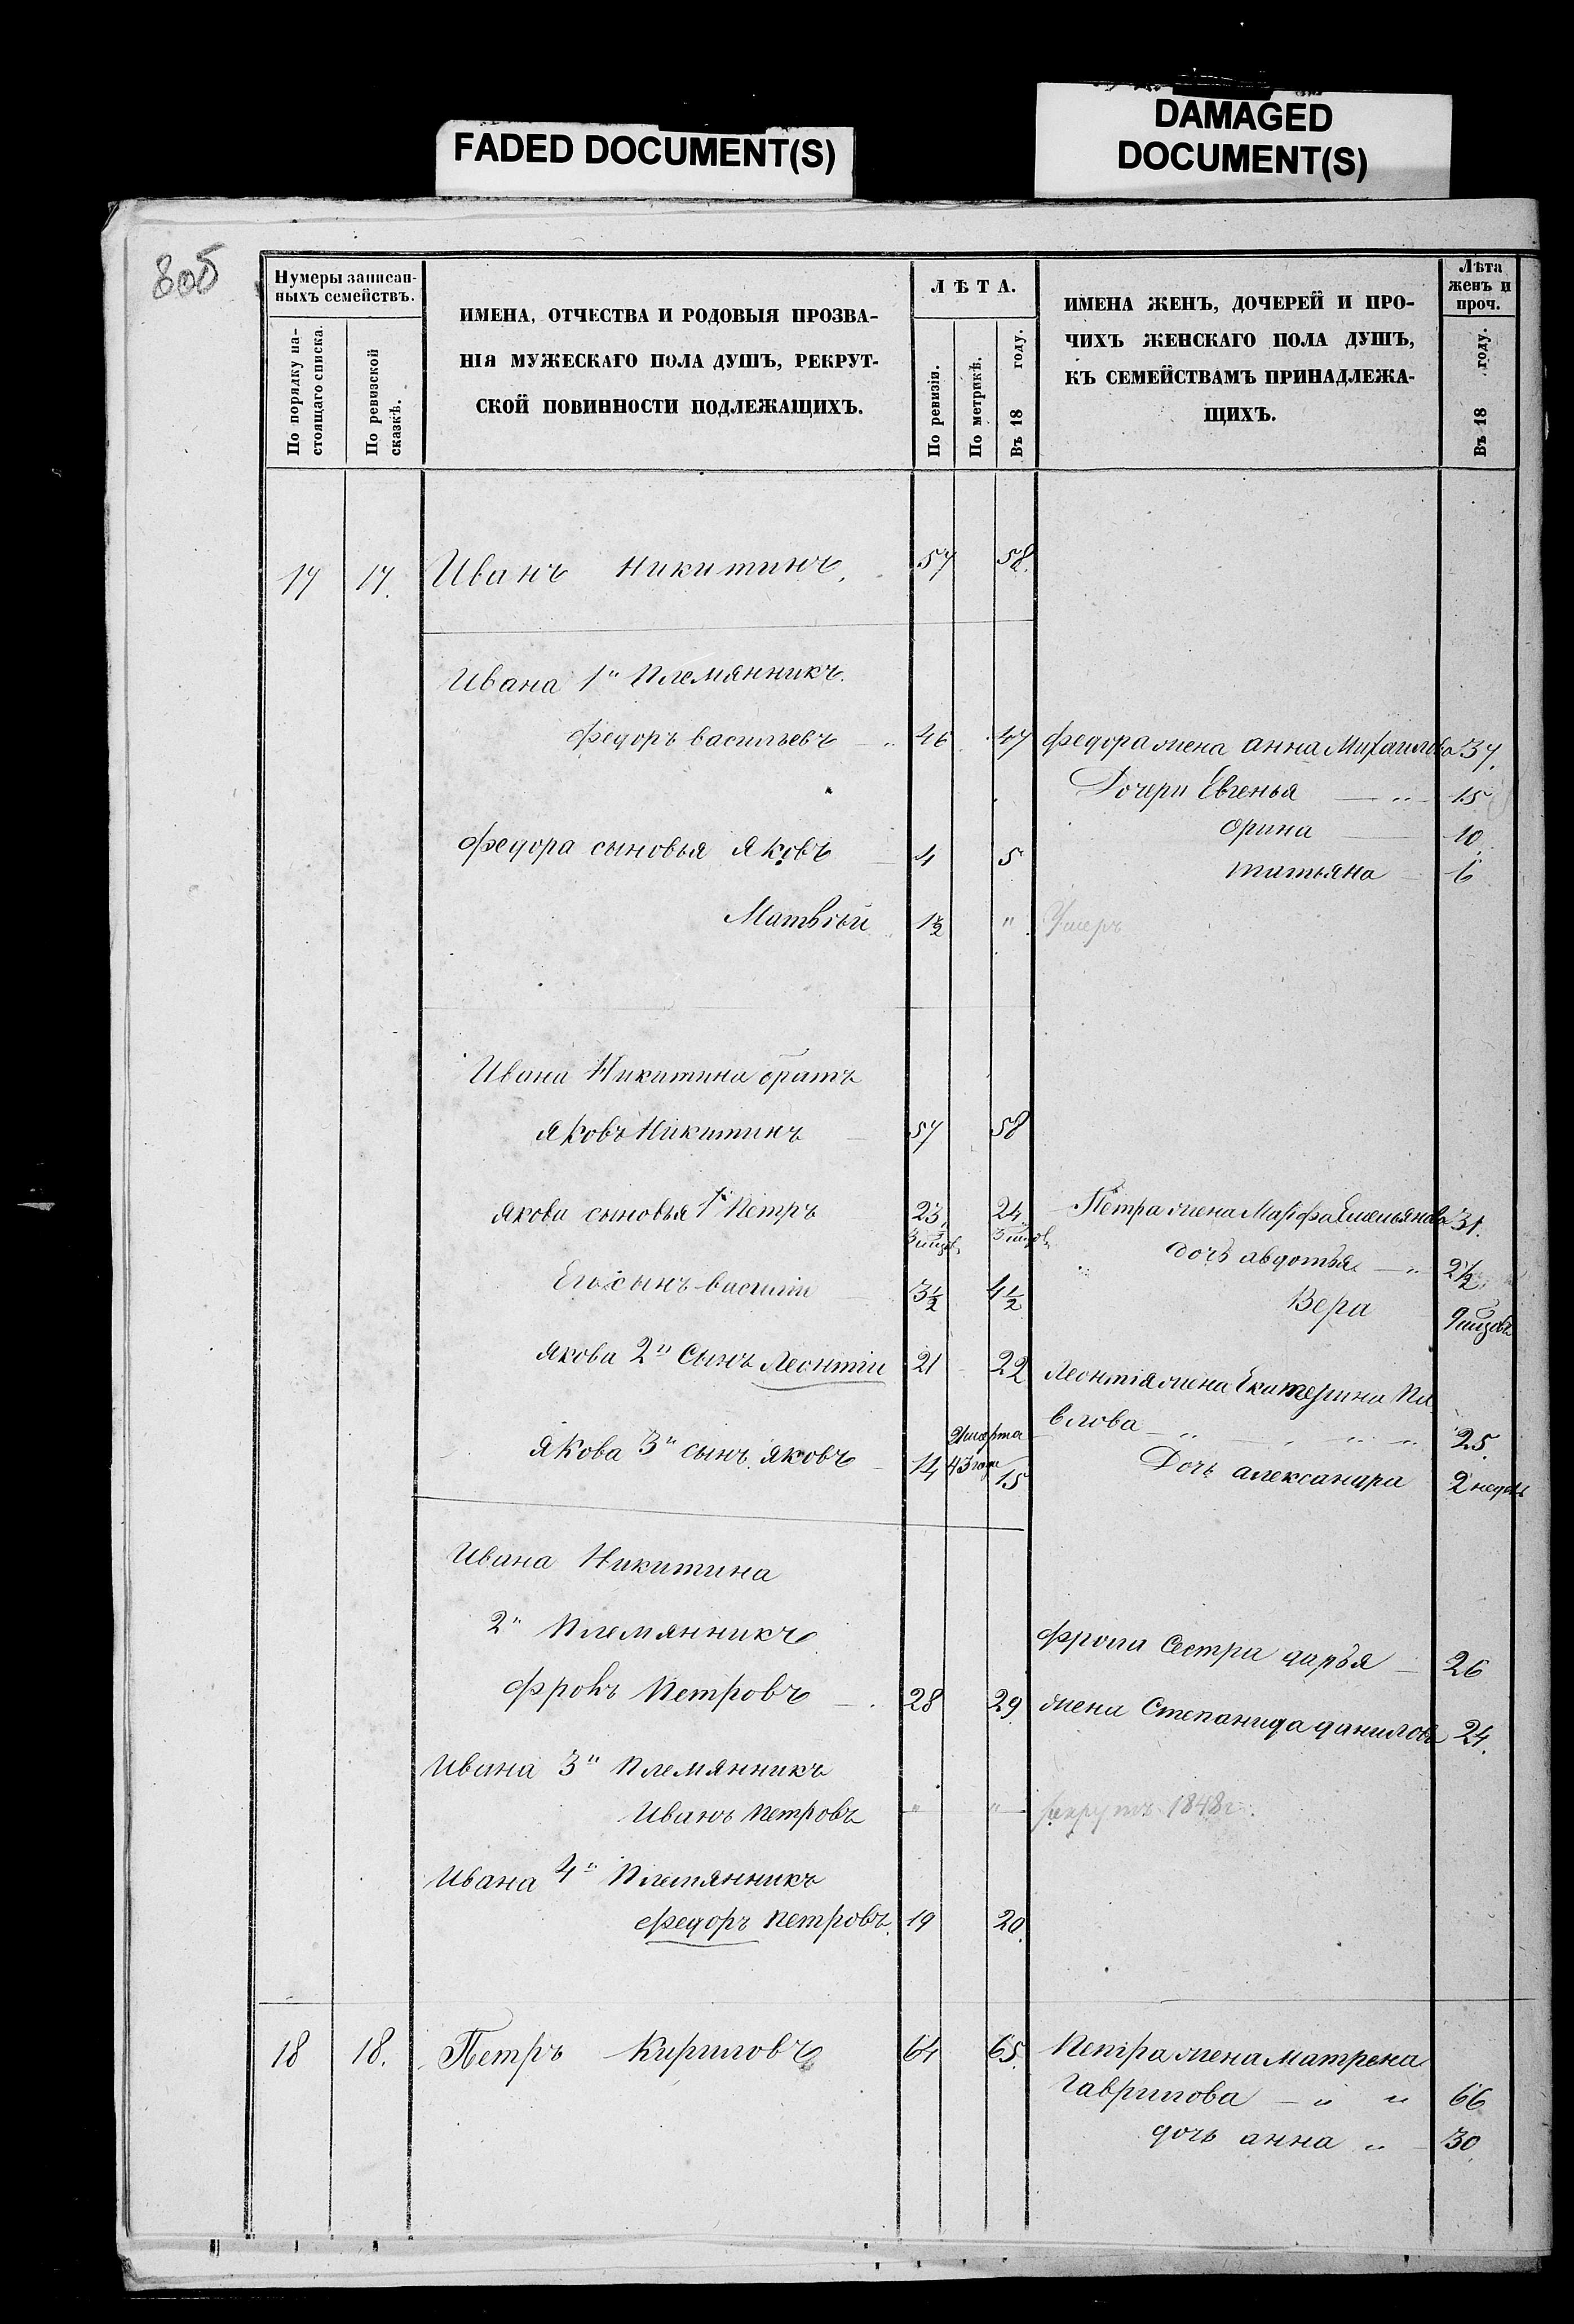 FADED DOCUMENT(S)
DAMAGED
DOCUMENT(S)
805
Нумеры записан-
ныхъ семействъ.
По порядку на-
стоящаго списка.
По ревизской
сказкѣ.
ИМЕНА, ОТЧЕСТВА И РОДОВЫЯ ПРОЗВА-
НІЯ МУЖЕСКАГО ПОЛА ДУШЪ, РЕКРУТ-
СКОЙ ПОВИННОСТИ ПОДЛЕЖАЩИХЪ.
ЛѢТА.
По ревизіи.
По метрикѣ.
Въ 18 году.
ИМЕНА ЖЕНЪ, ДОЧЕРЕЙ И ПРО-
ЧИХЪ ЖЕНСКАГО ПОЛА ДУШЪ,
КЪ СЕМЕЙСТВАМЪ ПРИНАДЛЕЖА-
ЩИХЪ.
Лѣта
женъ и
проч.
Въ 18 году.
17 17. Иванъ Никитинъ. 57 58.
Ивана 1й Племянникъ.
Федоръ васильевъ 46 47 Федора жена анна Михаилова 37.
Дочери Евгенья 15
орина 10
Федора сыновья яковъ 4 5
татьяна 6
Матвѣй 1½ " Умеръ
Ивана Никитина братъ
яковъ Никитинъ 57 58
якова сыновья 1й Петръ 23, 24 Петра жена Марфа Емельянова 31.
3 мѣсяц. 3 мѣсяц.
дочь авдотья 2½
Его сынъ василій 3½ 4½
Вера 9 мѣсяцовъ
якова 2й Сынъ Леонтій 21 22 Леонтія жена Екатерина Па
влова 25.
якова 3й сынъ яковъ 14 Марта 43 года 15
Дочь александра 2 недѣль
Ивана Никитина
2й Племянникъ
Фрола Сестра дарья 26
Фролъ Петровъ 28 29 жена Степанида данилова 24.
Ивана 3й Племянникъ
Иванъ Петровъ " " рекрутъ 1848 г.
Ивана 4й Племянникъ
федоръ Петровъ. 19 20.
18 18. Петръ Кириловъ 64 65. Петра жена Матрена
Гаврилова " " 66
дочь анна " 30.